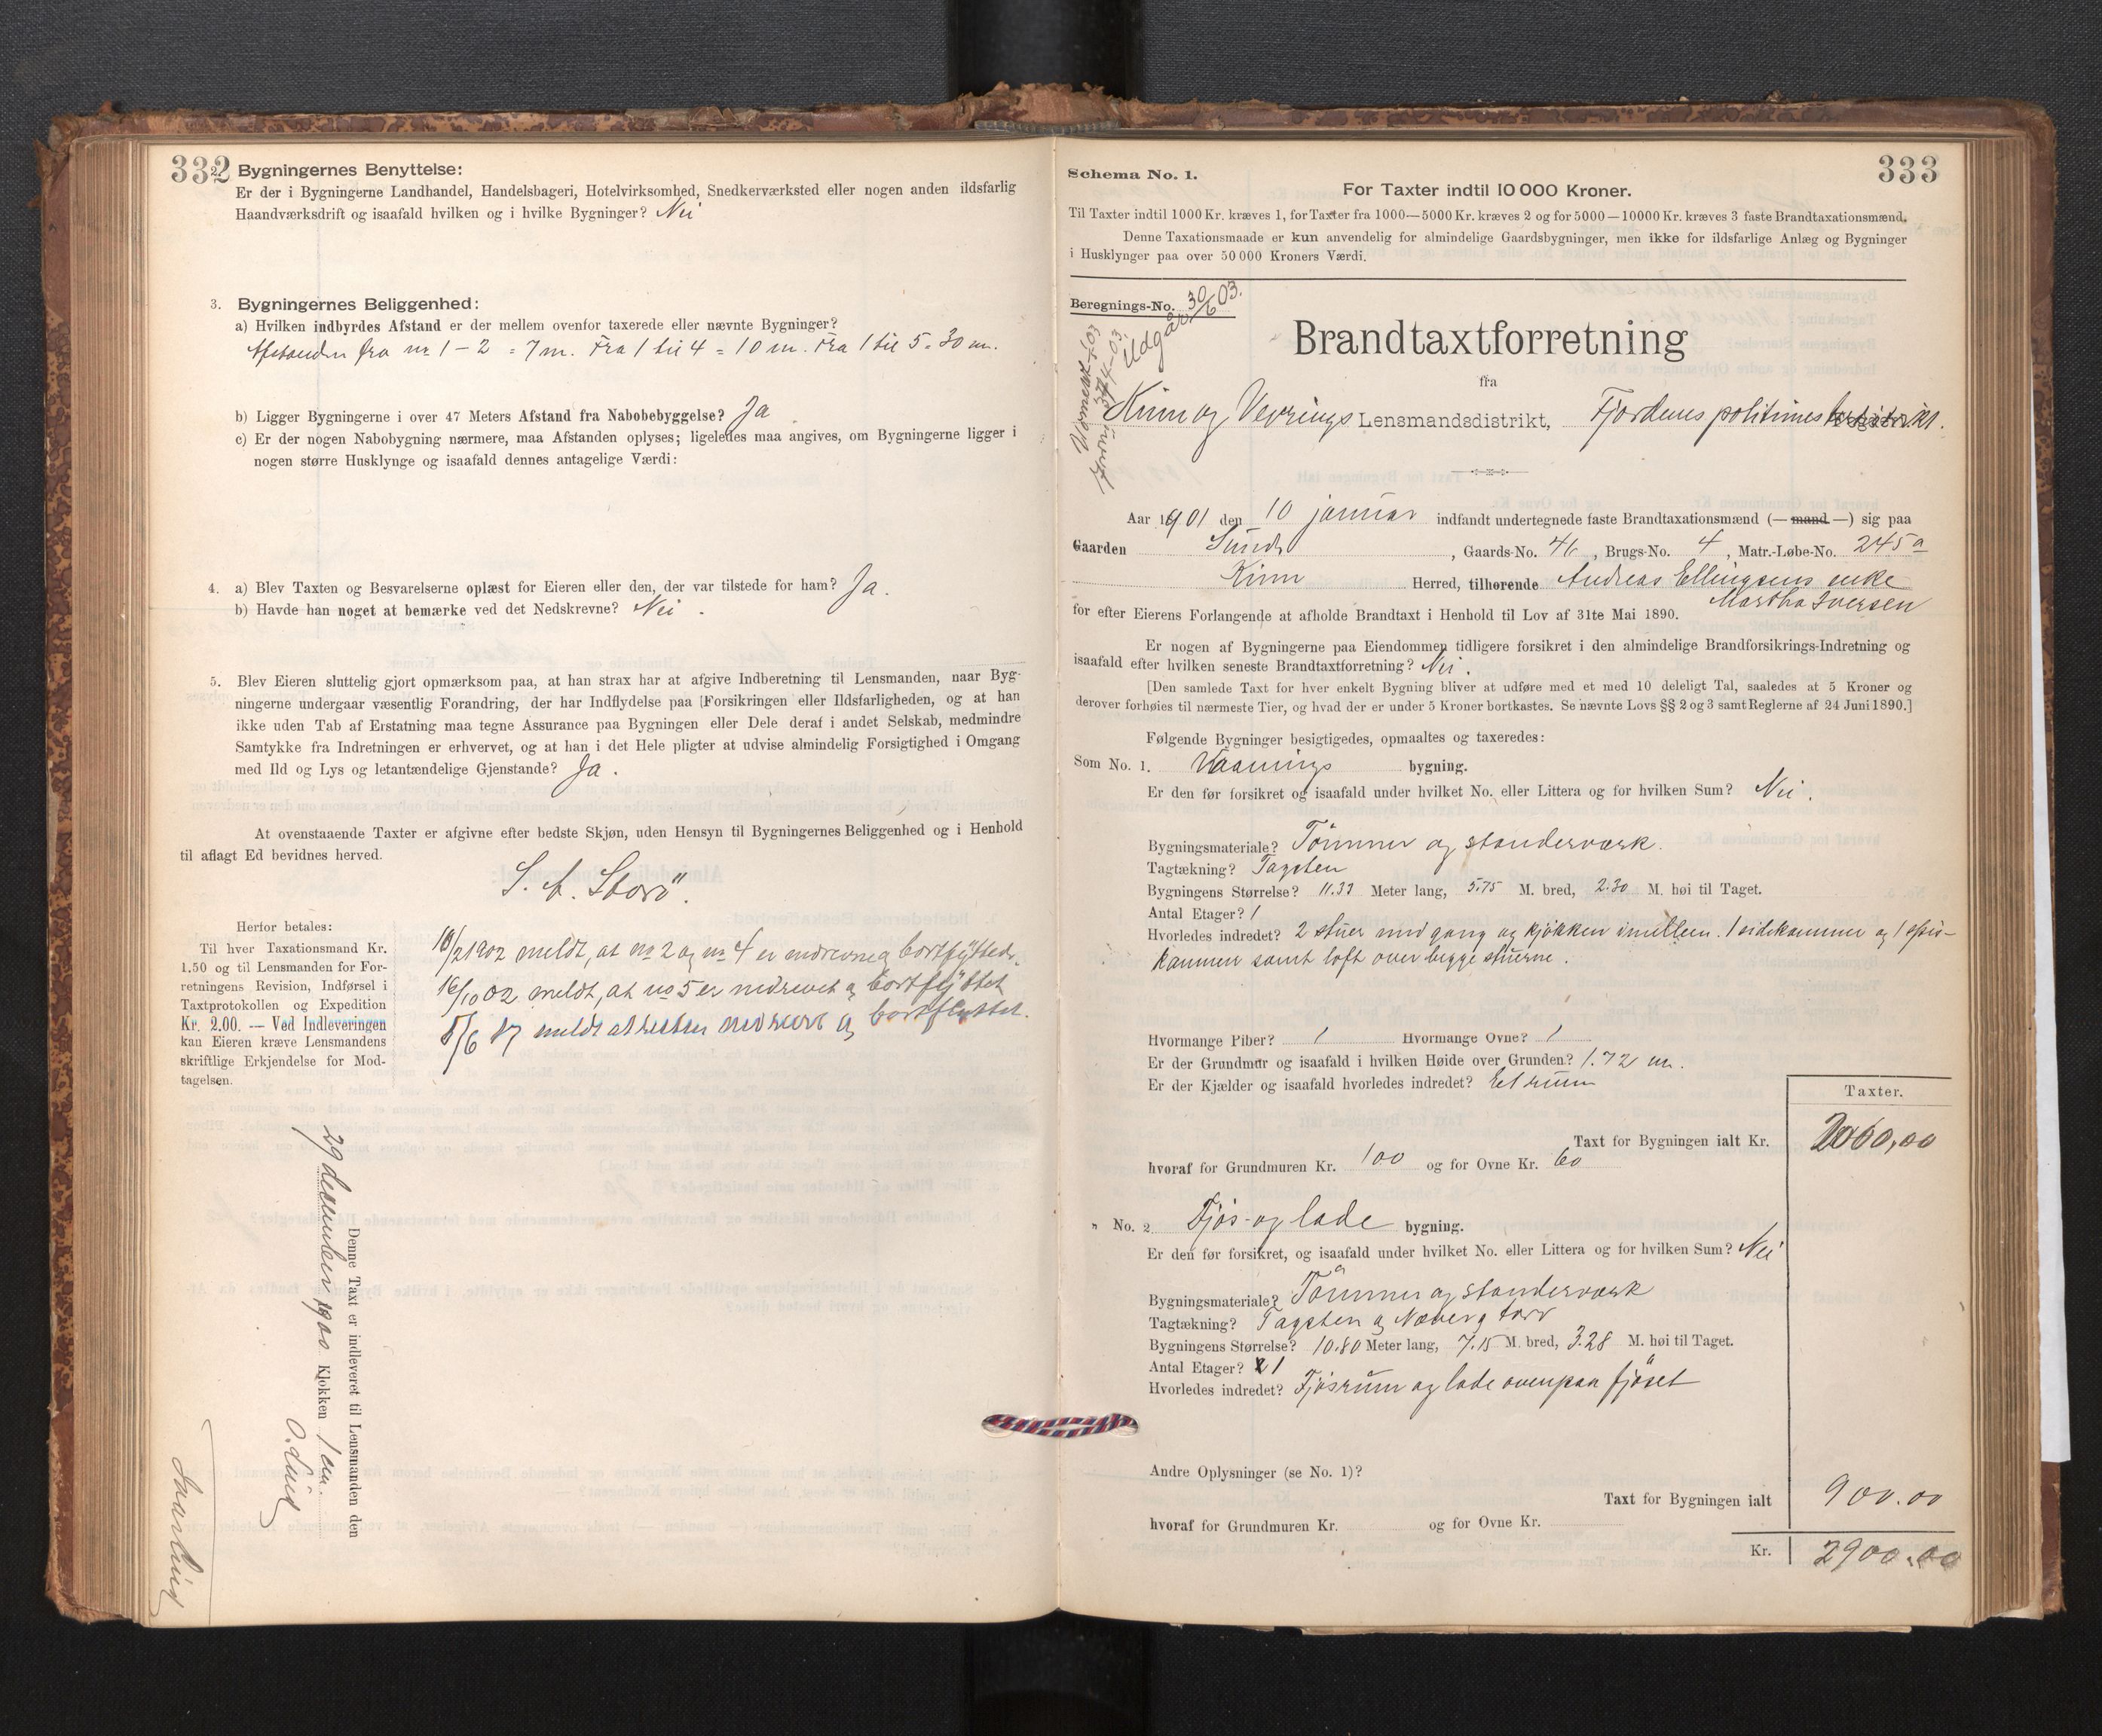 332
2. Bygningernes Benyttelse:
Er der i Bygningerne Landhandel, Handelsbageri, Hotelvirksomhed, Snedkerværksted eller nogen anden ildsfarlig
Haandværksdrift og isaafald hvilken og i hvilke Bygninger? Nei
3. Bygningernes Beliggenhed:
a) Hvilken indbyrdes Afstand er der mellem ovenfor taxerede eller nævnte Bygninger?
Afstanden fra no 1 - 2 = 7 m. Fra 1 til 4 = 10 m. Fra 1 til 5 = 30 m.
b) Ligger Bygningerne i over 47 Meters Afstand fra Nabobebyggelse? Ja
c) Er der nogen Nabobygning nærmere, maa Afstanden oplyses; ligeledes maa angives, om Bygningerne ligger i
nogen større Husklynge og isaafald dennes antagelige Værdi:
4. a) Blev Taxten og Besvarelserne oplæst for Eieren eller den, der var tilstede for ham? Ja.
b) Havde han noget at bemærke ved det Nedskrevne? Nei.
5. Blev Eieren sluttelig gjort opmærksom paa, at han strax har at afgive Indberetning til Lensmanden, naar Byg-
ningerne undergaar væsentlig Forandring, der har Indflydelse paa Forsikringen eller Ildsfarligheden, og at han
ikke uden Tab af Erstatning maa tegne Assurance paa Bygningen eller Dele deraf i andet Selskab, medmindre
Samtykke fra Indretningen er erhvervet, og at han i det Hele pligter at udvise almindelig Forsigtighed i Omgang
med Ild og Lys og letantændelige Gjenstande? Ja.
At ovenstaaende Taxter er afgivne efter bedste Skjøn, uden Hensyn til Bygningernes Beliggenhed og i Henhold
til aflagt Ed bevidnes herved.
S. A. Storö.
Herfor betales:
Til hver Taxationsmand Kr.
1.50 og til Lensmanden for For-
retningens Revision, Indførsel i
Taxtprotokollen og Expedition
Kr. 2.00. — Ved Indleveringen
kan Eieren kræve Lensmandens
skriftlige Erkjendelse for Mod-
tagelsen.
18/2 1902 meldt, at no 2 og no 4 er nedrevne og bortflyttede.
16/10 02 meldt, at no 5 er nedrevet og bortflyttet
8/6 17 meldt at resten nedrevet og bortflyttet.
Denne Taxt er indleveret til Lensmanden den
29 december 1900 Klokken 1 em.
O. Lund
333
Schema No. 1.
For Taxter indtil 10 000 Kroner.
Til Taxter indtil 1000 Kr. kræves 1, for Taxter fra 1000—5000 Kr. kræves 2 og for 5000—10000 Kr. kræves 3 faste Brandtaxationsmænd.
Denne Taxationsmaade er kun anvendelig for almindelige Gaardsbygninger, men ikke for ildsfarlige Anlæg og Bygninger
i Husklynger paa over 50 000 Kroners Værdi.
Beregnings-No.
Udgår 30/6 03.
Brandtaxtforretning
fra
Kinn og Vevrings Lensmandsdistrikt, Fjordenes politimesterdistrikt.
Aar 1901 den 10 januar indfandt undertegnede faste Brandtaxationsmænd (— mand —) sig paa
Gaarden Sunds, Gaards-No. 41, Brugs-No. 4, Matr.-Løbe-No. 245 a
Kinn Herred, tilhørende Andreas Ellingsens enke
Martha Iversen
for efter Eierens Forlangende at afholde Brandtaxt i Henhold til Lov af 31te Mai 1890.
Er nogen af Bygningerne paa Eiendommen tidligere forsikret i den almindelige Brandforsikrings-Indretning og
isaafald efter hvilken seneste Brandtaxtforretning? Nei.
[Den samlede Taxt for hver enkelt Bygning bliver at udføre med et med 10 deleligt Tal, saaledes at 5 Kroner og
derover forhøies til nærmeste Tier, og hvad der er under 5 Kroner bortkastes. Se nævnte Lovs §§ 2 og 3 samt Reglerne af 24 Juni 1890.]
Følgende Bygninger besigtigedes, opmaaltes og taxeredes:
Som No. 1. Vaanings bygning.
Er den før forsikret og isaafald under hvilket No. eller Littera og for hvilken Sum? Nei.
Bygningsmateriale? Tömmer og standerværk.
Tagtækning? Tagsten
Bygningens Størrelse? 11.33 Meter lang, 5.75 M. bred, 2.30 M. høi til Taget.
Antal Etager? 1
Hvorledes indredet? 2 stuer med gang og kjökken imellem. 1 sidekammer og 1 spis-
kammer samt loft over begge stuerne.
Hvormange Piber? 1 Hvormange Ovne? 1
Er der Grundmur og isaafald i hvilken Høide over Grunden? 1.72 m.
Er der Kjælder og isaafald hvorledes indredet? Et rum
Taxter.
Taxt for Bygningen ialt Kr. 2060,00
hvoraf for Grundmuren Kr. 100 og for Ovne Kr. 60
" No. 2 Fjøs- og lade bygning.
Er den før forsikret, og isaafald under hvilket No. eller Littera og for hvilken Sum? Nei
Bygningsmateriale? Tömmer og standerværk
Tagtækning? Tagsten og Næver og torv
Bygningens Størrelse? 10.80 Meter lang, 7.15 M. bred, 3.28 M. høi til Taget.
Antal Etager? 1
Hvorledes indredet? Fjösrum og lade ovenpaa fjöset
Andre Oplysninger (se No. 1)?
Taxt for Bygningen ialt 900.00
hvoraf for Grundmuren Kr. og for Ovne Kr.
Kr. 2900.00